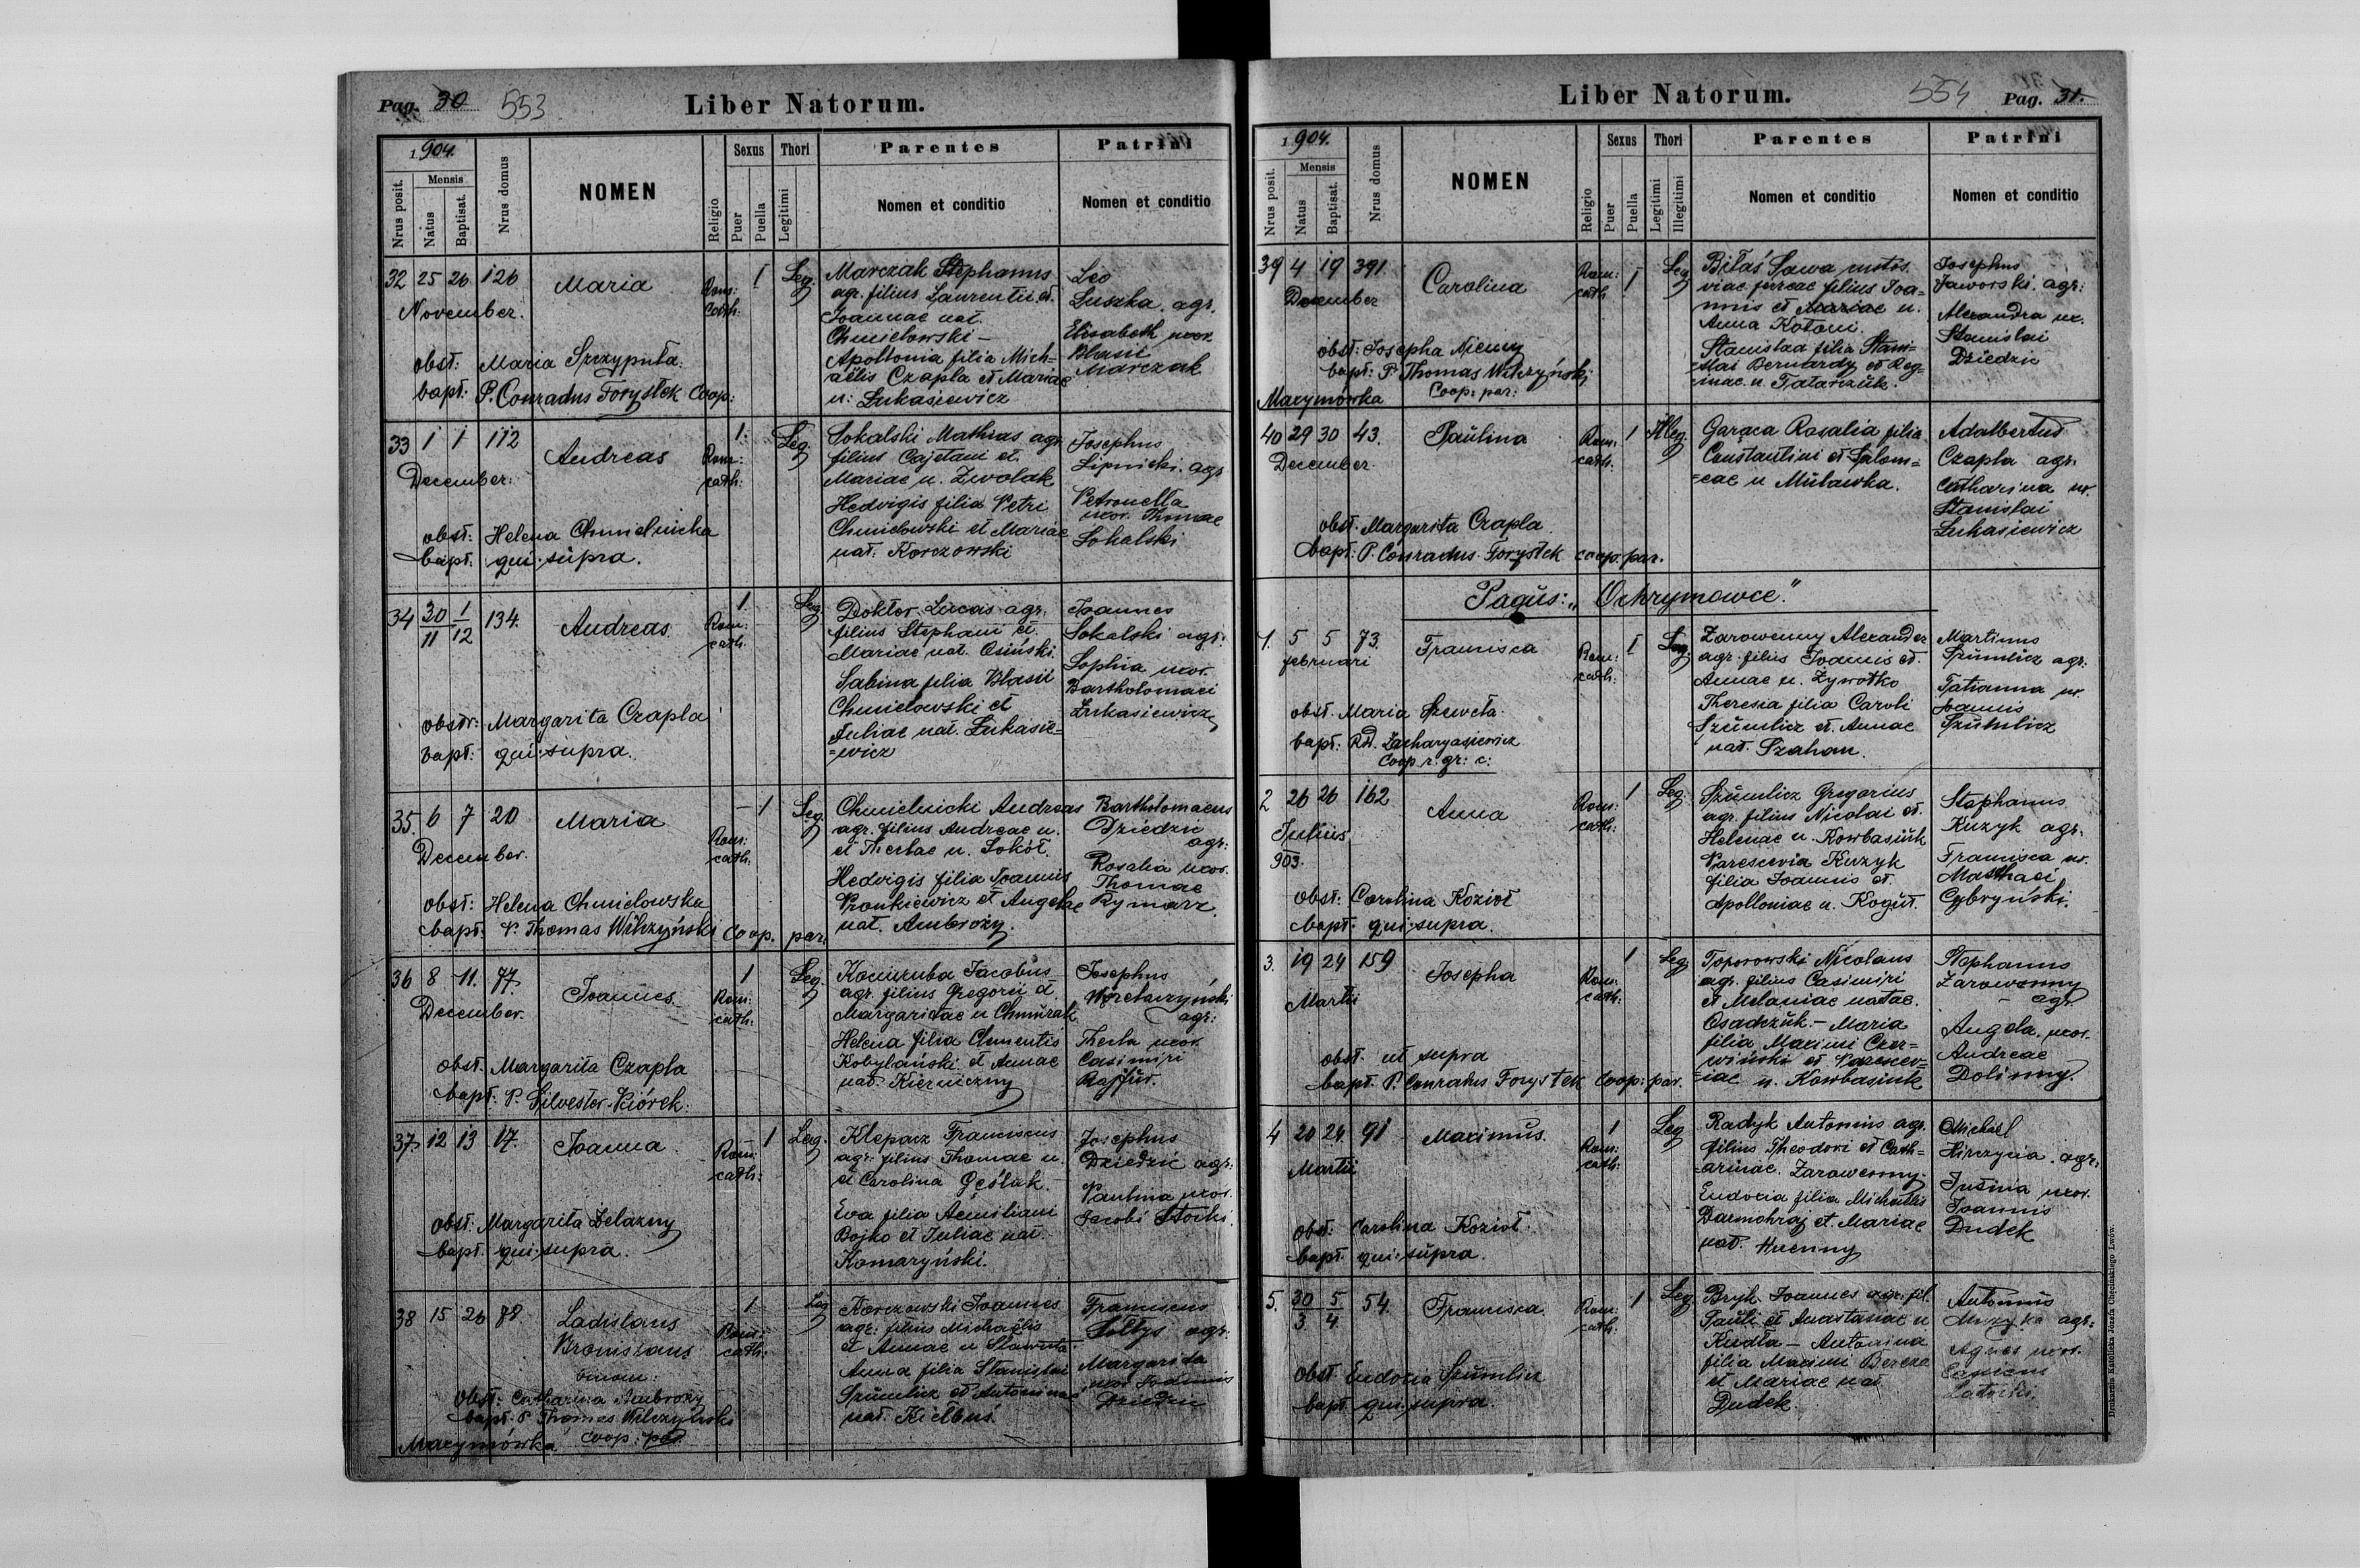 Pag. 30 553 Liber Natorum.
1904.
Nrus posit.
Mensis
Natus
Baptisat.
Nrus domus
NOMEN
Religio
Sexus
Puer
Puella
Thori
Legitimi
Parentes
Nomen et conditio
Patrini
Nomen et conditio
32 25 26 126 Maria Rom: cath: 1 Leg.
November.
obst: Maria Szczyputa.
bapt: P. Conradus Forystek Coop:
Marczak Stephanus
agr. filius Laurentii et
Joannae nat.
Chmielowski –
Apollonia filia Mich=
aëlis Czapla et Mariae
n: Łukasiewicz
Leo
Suszka. agr.
Elisabeth uxor
Blasii
Marczak
33 1 1 112 Andreas Rom: cath: 1. Leg.
December:
obst: Helena Chmielnicka
bapt: qui supra.
Sokalski Mathias agr
filius Cajetani et
Mariae n. Zwolak
Hedvigis filia Petri
Chmielowski et Mariae
nat: Korczowski
Josephus
Lipnicki. agr
Petronella
uxor. Thomae
Sokalski
34 30/11 1/12 134. Andreas. Rom: cath. 1 Leg.
obstr: Margarita Czapla
bapt: qui supra.
Doktor Lucas agr.
filius Stephani et
Mariae nat. Osiński.
Sabina filia Blasii
Chmielowski et
Juliae nat. Łukasie=
=wicz
Joannes
Sokalski agr:
Sophia uxor.
Bartholomaei
Łukasiewicz
35. 6 7 20 Maria Rom: cath: – 1 Leg.
December.
obst: Helena Chmielowska
bapt. P. Thomas Wilczyński Coop. par.
Chmielnicki Andreas
agr. filius Andreae n.
et Theclae n. Sokół.
Hedvigis filia Joannis
Pronkiewicz et Angelae
nat. Ambroży.
Bartholomaeus
Dziedzic
agr:
Rosalia uxor.
Thomae
Rymarz.
36 8 11. 77. Joannes. Rom: cath: 1 Leg.
December.
obst. Margarita Czapla
bapt. P. Silvester Piórek.
Jacobus
agr. filius Gregorii et
Margaritae n Chmurak
Helena filia Clementis
Kobylański et Annae
nat. Kierniczny
Josephus
agr:
Thecla uxor.
Casimiri
37. 12 13 17. Joanna. Rom: cath: 1 Leg.
obst. Margarita Żelazny
bapt. qui supra.
Klepacz Franciscus
agr. filius Thomae n
et Carolina Gęśluk.
Eva filia Aemiliani
Bojko et Juliae nat.
Komaryński.
Josephus
Dziedzic agr:
Paulina uxor.
Jacobi Stocki.
38 15 26 78. Ladislaus Rom: cath: 1 Leg
binom:
obst: Catharina Ambroży
bapt. P. Thomas Wilczyński
coop: par.
Maxymówka
Korczowski Joannes
agr: filius Michaëlis
et Annae n
Anna filia Stanislai
Szumlicz et Antoninae
nat. Kiełbus.
Franciscus
Sołtys agr:
Margarita
uxor Joannis
Dziedzic
Liber Natorum. 554 Pag. 31.
1904.
Nrus posit.
Mensis
Natus
Baptisat.
Nrus domus
NOMEN
Religio
Sexus
Puer
Puella
Thori
Legitimi
Illegitimi
Parentes
Nomen et conditio
Patrini
Nomen et conditio
39 4 19 391 Carolina Rom: cath 1 Leg
December
obst: Josepha Niemy
bapt: P. Thomas Wilczyński
Coop: par:
Maxymówka
Biłaś Sawa custos.
viae ferreae filius Joa=
nnis et Mariae n.
Anna Kotoni.
Stanislaa filia Stani=
slai Bernardy et Reg=
inae n. Tatarczuk.
Josephus
Jaworski. agr:
Alexandra ux.
Stanislai
Dziedzic
40 29 30 43. Paulina Rom: cath: 1 Illeg.
December.
obst. Margarita Czapla
bapt: P. Conradus Forystek coop. par.
Garaca Rosalia filia
Constantini et Salom=
=eae n Muławka.
Adalbertus
Czapla agr.
Catharina ux.
Stanislai
Łukasiewicz
Pagus: „Ochrymowce."
1. 5 5 73. Francisca Rom: cath: 1 Leg.
februari
obst. Maria Szewcta.
bapt: Rd. Zacharyasiewicz
Coop r. gr: c:
Zarowenny Alexander
agr. filius Joannis et
Annae n. Żywotko
Theresia filia Caroli
Szumlicz et Annae
nat. Szahan.
Martinus
Szumlicz agr:
Tatianna ux.
Joannis
Szumlicz
2 26 26 162 Anna Rom: cath: 1 Leg.
Julius
903.
obst: Carolina Kozioł
bapt. qui supra.
Szumlicz Gregorius
agr. filius Nicolai et
Helenae n. Kowbasiuk
Parascevia Kuzyk
filia Joannis et
Apolloniae n. Kogut.
Stephanus
Kuzyk agr.
Francisca ux.
Matthaei
Cybryński.
3. 19 24 159 Josepha Rom: cath: 1 Leg
Martii
obst. ut supra
bapt. P. Conradus Forystek Coop: par.
Toporowski Nicolaus
agr. filius Casimiri
et Melaniae natae.
Osadczuk. – Maria
filia Maximi Czer=
wiński et Parascev=
=iae n. Kowbasiuk
Stephanus
Zarowenny
– agr
Angela. uxor.
Andreae
Dolinny.
4 20 24. 91 Maximus. Rom: cath: 1 Leg
Martii
obst. Carolina Kozioł.
bapt. qui supra.
Radyk Antonius agr.
filius Theodori et Cath=
=arinae. Zarowenny.
Eudocia filia Michaëlis
Darmohraj et Mariae
nat. Huenny
Michael
Hirczycia. agr:
Justina uxor.
Joannis
Dudek
5. 30/3 5/4 54. Francisca Rom: cath: 1 Leg
obst. Eudocia Szumlicz
bapt. qui supra.
Bryk. Joannes agr: fil.
Pauli et Anastasiae n
Kudła – Antonina
filia Maximi Bereza
et Mariae nat
Dudek.
Antonius
Muzyka agr:
Agnes uxor.
Drukarnia Katolicka Józefa Chęcińskiego Lwów.